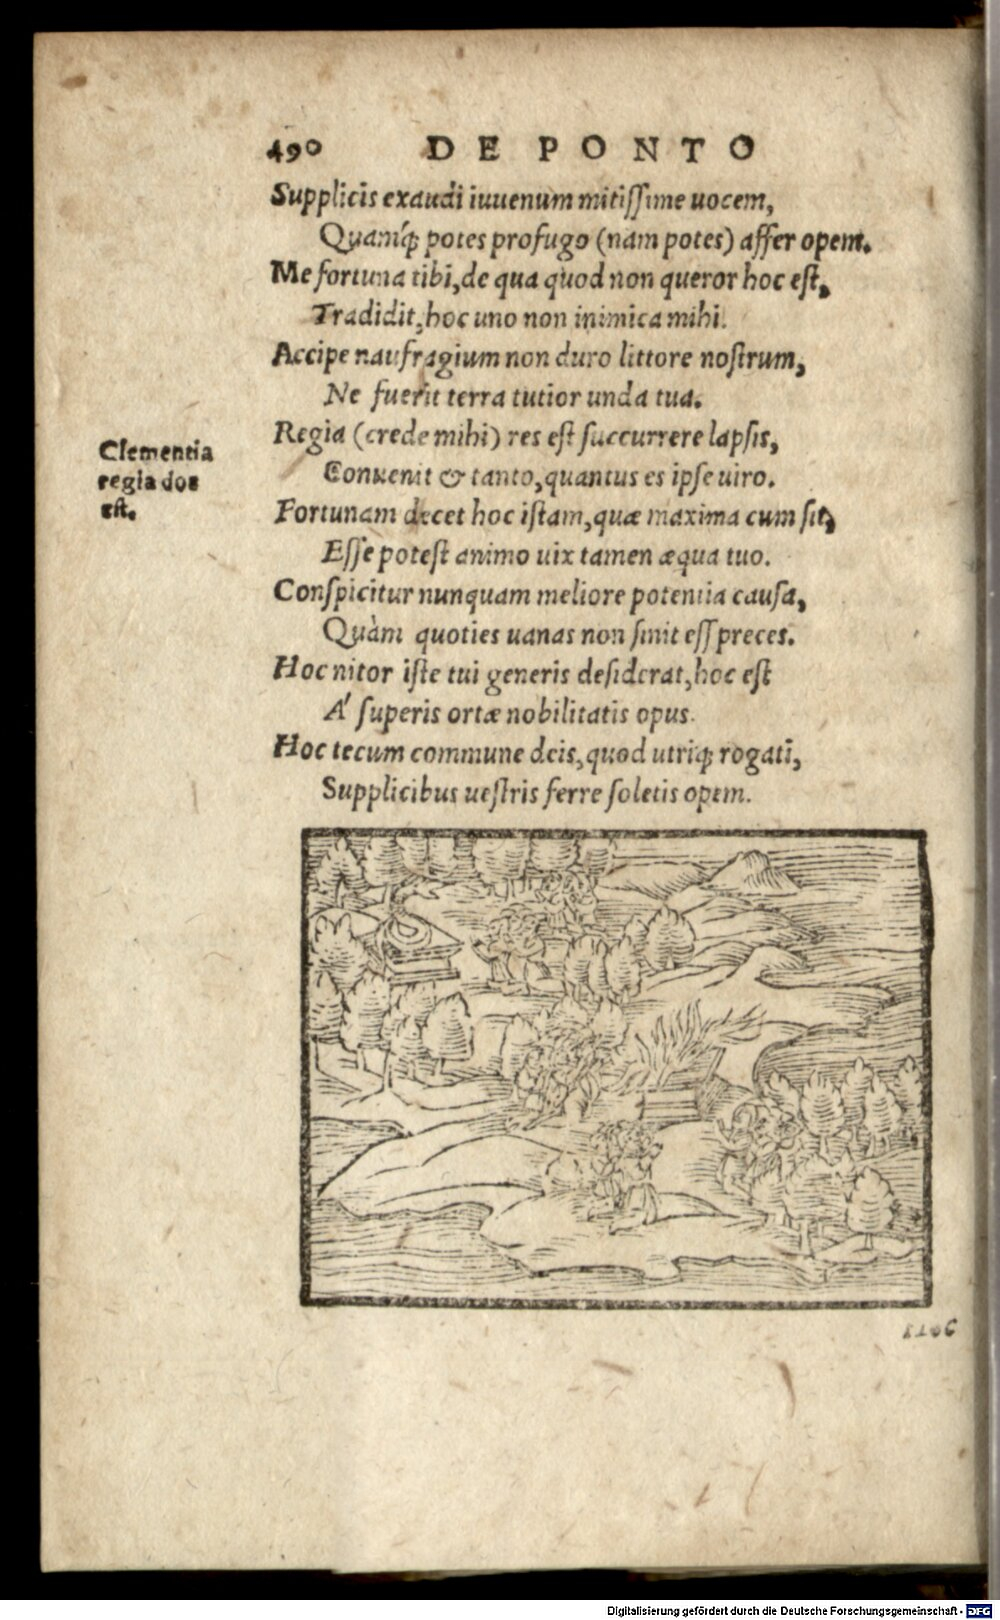 490 DE PONTO
Supplicis exaudi iuuenum mitissime uocem,
Quamq́; potes profugo (nam potes) affer opem.
Me fortuna tibi, de qua quod non queror hoc est,
Tradidit, hoc uno non inimica mihi.
Accipe naufragium non duro littore nostrum,
Ne fuerit terra tutior unda tua.
Regia (crede mihi) res est succurrere lapsis,
Conuenit & tanto, quantus es ipse uiro.
Clementia
regia dos
est.
Fortunam decet hoc istam, quæ maxima cum sit,
Esse potest animo uix tamen æqua tuo.
Conspicitur nunquam meliore potentia causa,
Quàm quoties uanas non sinit ess preces.
Hoc nitor iste tui generis desiderat, hoc est
A' superis ortæ nobilitatis opus.
Hoc tecum commune deis, quod utriq; rogati,
Supplicibus uestris ferre soletis opem.
Digitalisierung gefördert durch die Deutsche Forschungsgemeinschaft - DFG